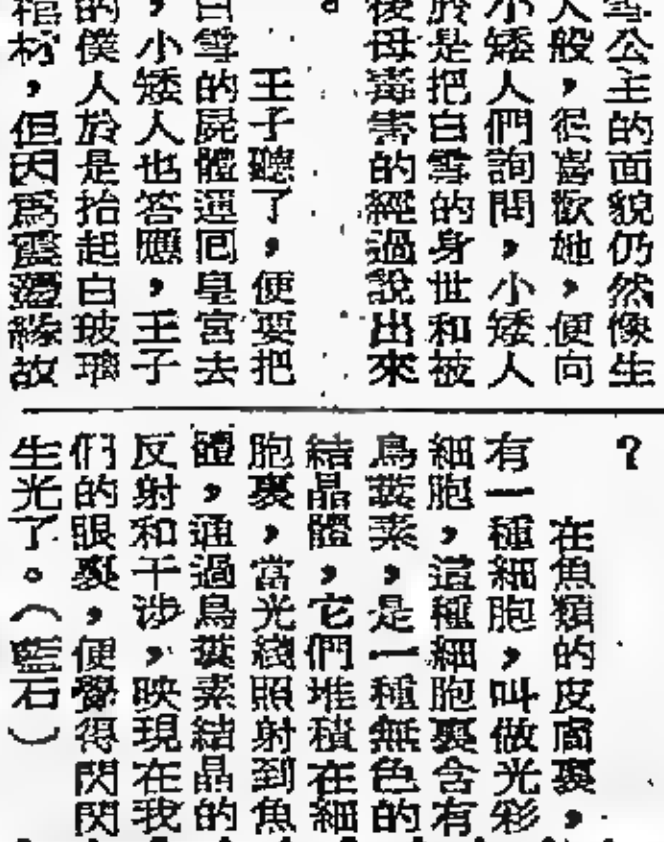 雪公主的面貌仍然像生
人般，很喜歡她，便向
小矮人們詢問，小矮人
於是把白雪的身世和被
後母毒害的經過說出來
。
王子聽了，便要把
白雪的屍體運回皇宮去
，小矮人也答應，王子
的僕人於是抬起白玻璃
棺材，但因爲震盪緣故
？
在魚類的皮膚裏，
有一種細胞，叫做光彩
細胞，這種細胞裏含有
鳥糞素，是一種無色的
結晶體，它們堆積在細
胞裏，當光綫照射到魚
體，通過鳥糞素結晶的
反射和干涉，映現在我
們的眼裏，便覺得閃閃
生光了。（藍石）